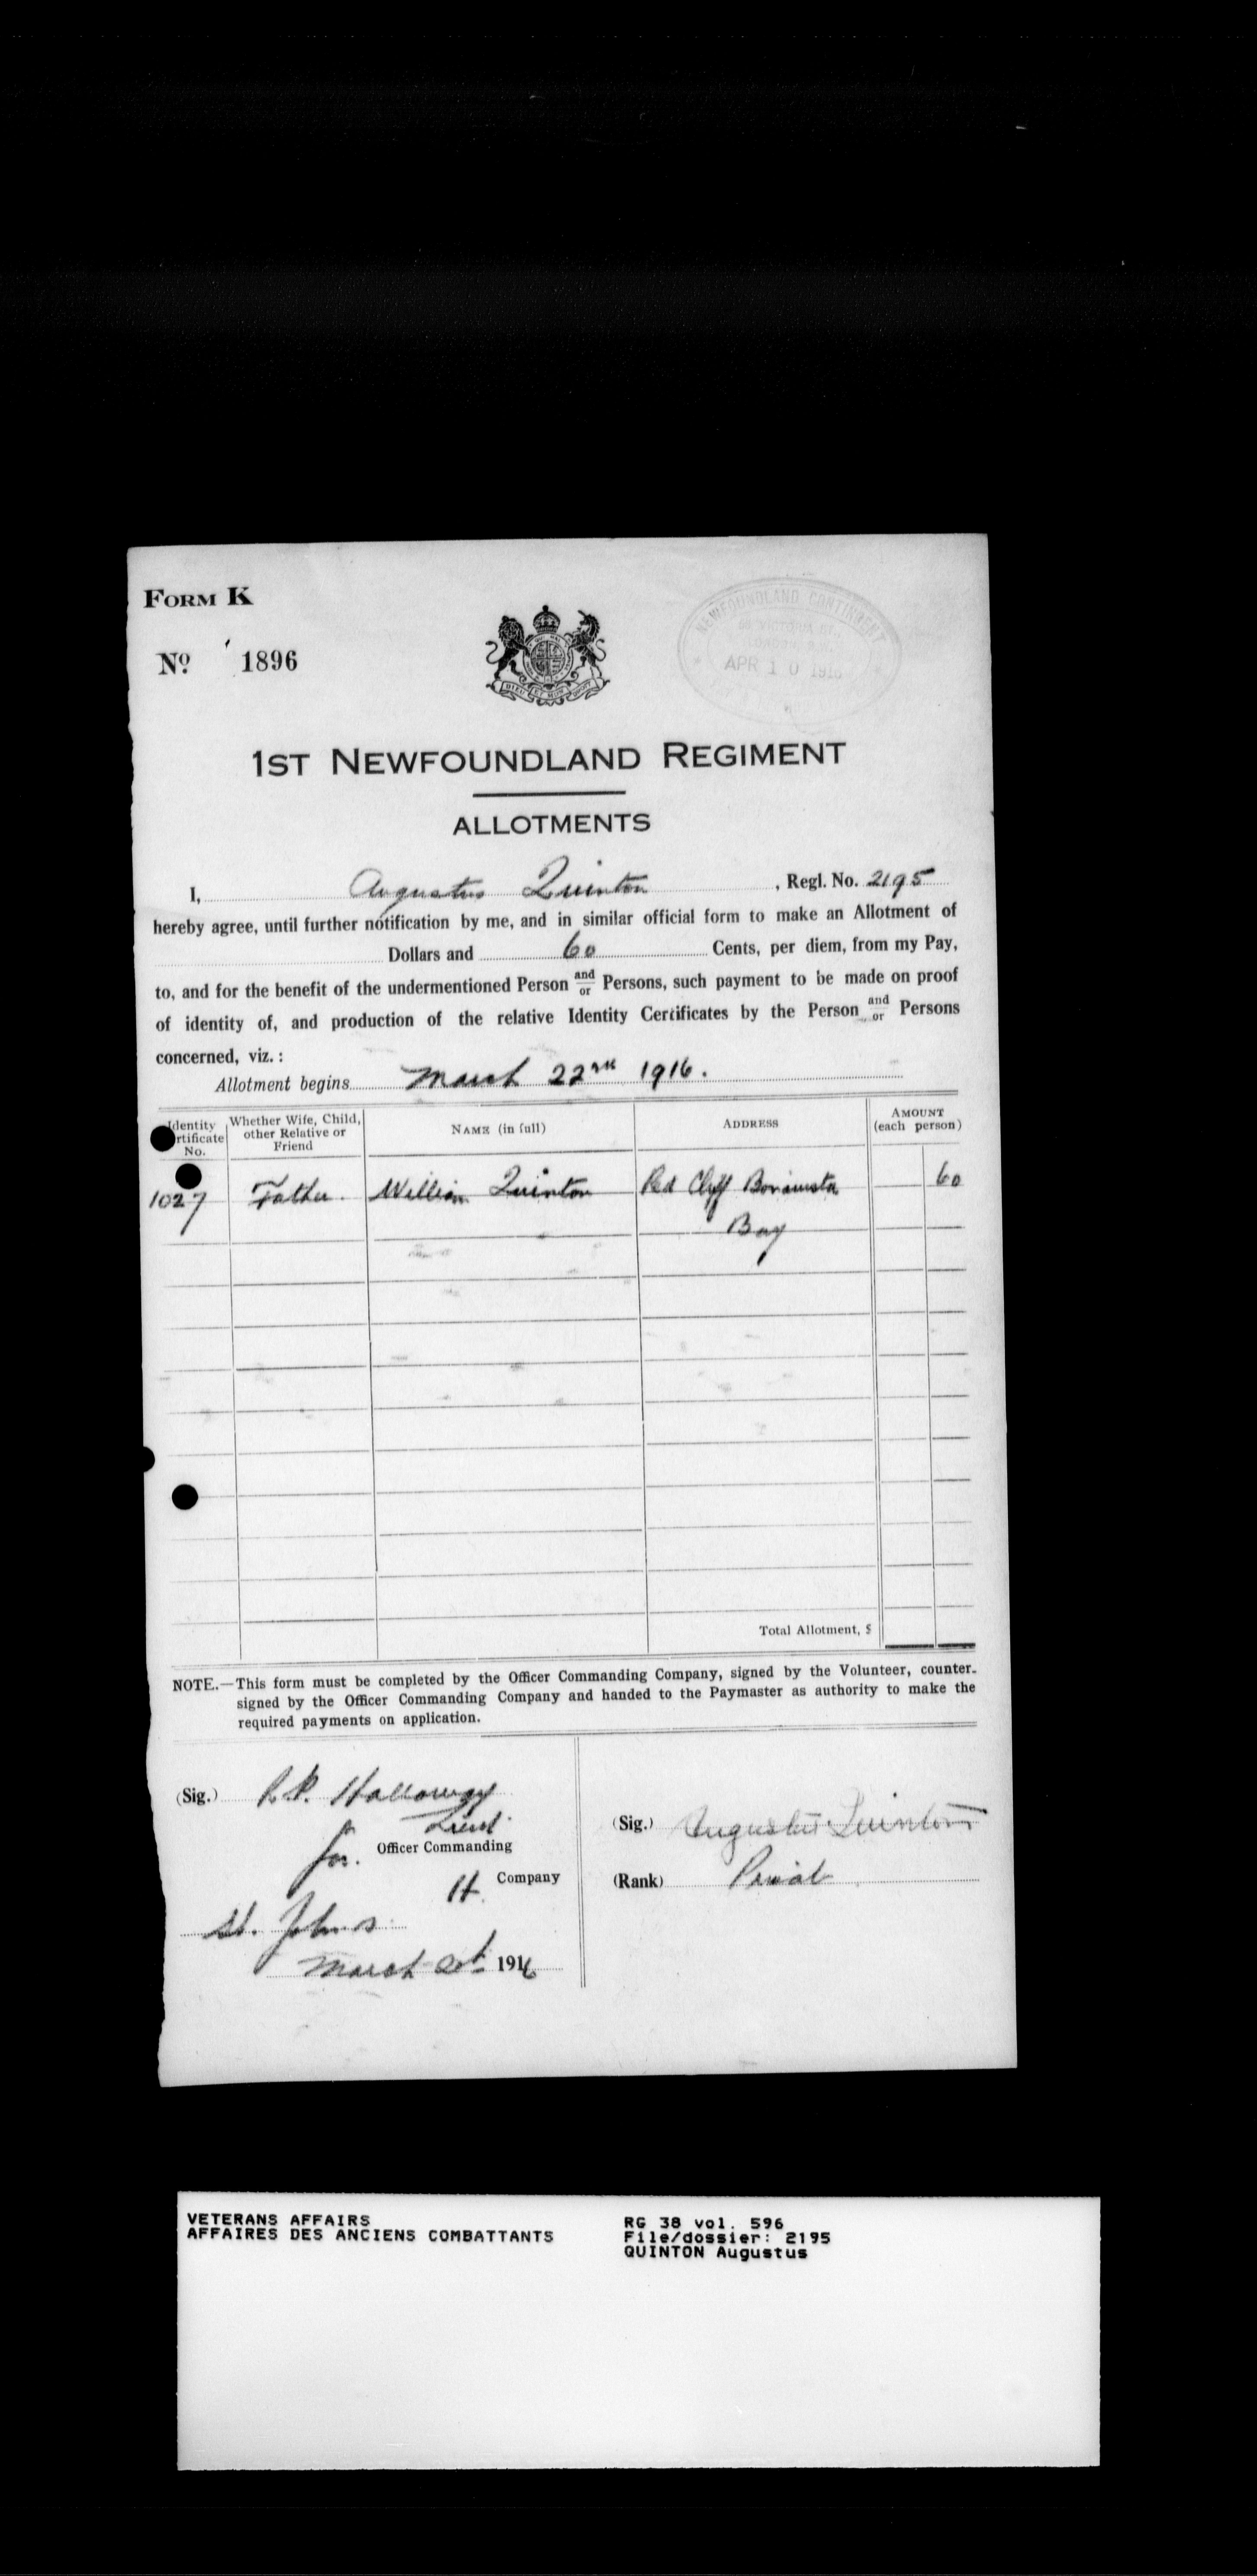 FORM K
No. 1896
NEWFOUNDLAND CONTINGENT
58 VICTORIA ST.,
LONDON, S.W.
APR 10 1916
DIEU ET MON DROIT
1ST NEWFOUNDLAND REGIMENT
ALLOTMENTS
I, Augustus Quinton, Regl. No. 2195
hereby agree, until further notification by me, and in similar official form to make an Allotment of
Dollars and 60 Cents, per diem, from my Pay,
to, and for the benefit of the undermentioned Person and/or Persons, such payment to be made on proof
of identity of, and production of the relative Identity Certificates by the Person and/or Persons
concerned, viz.:
Allotment begins March 22nd 1916.
Identity Certificate No. Whether Wife, Child, other Relative or Friend NAME (in full) ADDRESS AMOUNT (each person)
1027 Father. William Quinton Red Cliff Bonavista 60
Bay
Total Allotment, $
NOTE.—This form must be completed by the Officer Commanding Company, signed by the Volunteer, counter-
signed by the Officer Commanding Company and handed to the Paymaster as authority to make the
required payments on application.
(Sig.) R.P. Holloway
Lieut.
for. Officer Commanding
H. Company
St. John's
March 1916
(Sig.) Augustus Quinton
(Rank) Privat
VETERANS AFFAIRS
AFFAIRES DES ANCIENS COMBATTANTS
RG 38 vol. 596
File/dossier: 2195
QUINTON Augustus